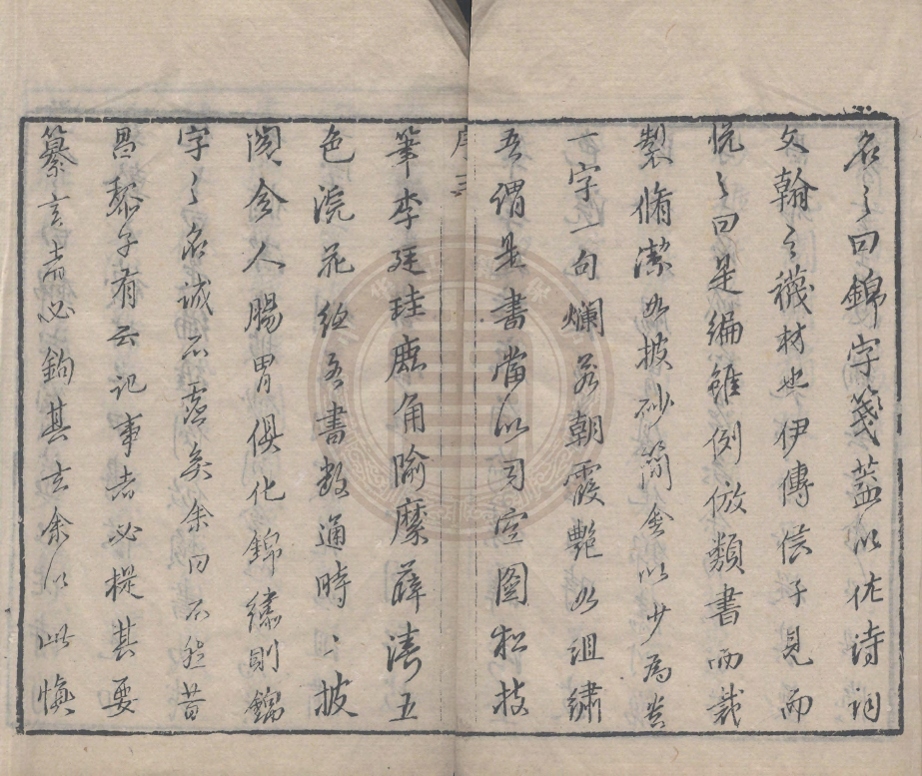 名之曰錦字箋蓋以佐詩詞
文翰之襪材也伊傳信子見而
悅之曰是編雖例倣類書而裁
製脩潔如披砂簡金以少為貴
一字一句爛若朝霞艷如沮繡
吾謂是書當以司空圖松枝
序 三
筆李廷珪鹿角隃糜薛濤五
色浣花紙各書數通時〻披
閱令人腸胃俱化錦繡則錦
字之名誠不虛矣余曰不然昔
昌黎子有云記事者必提其要
纂言者必鉤其玄余以此慎